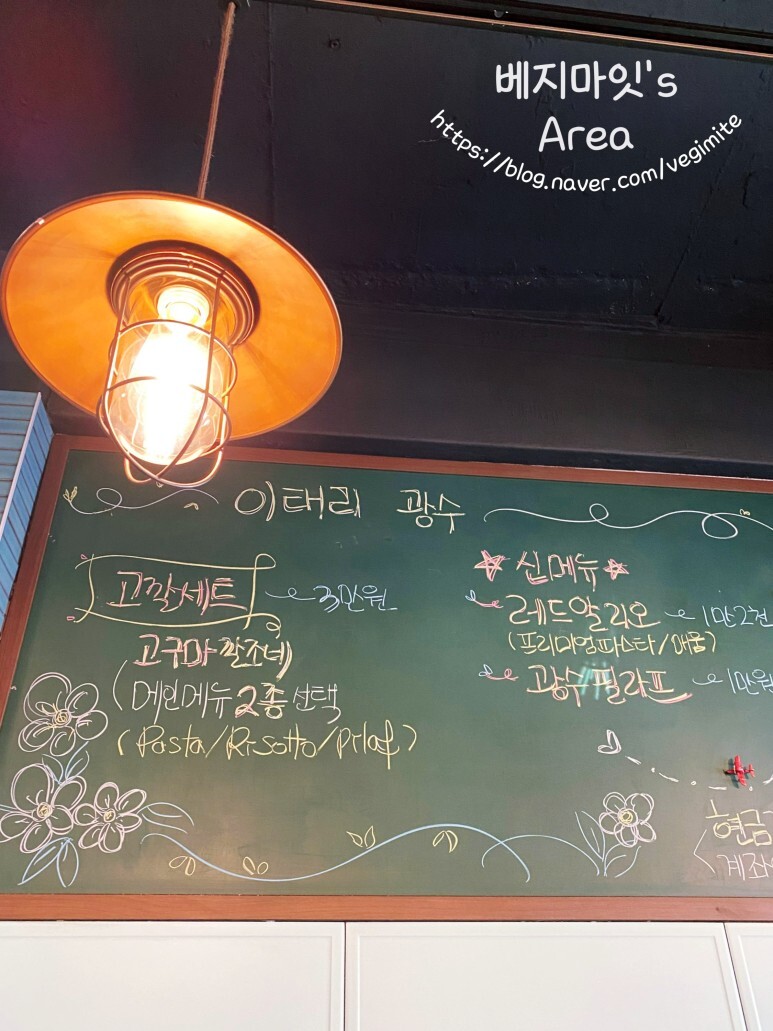 베지마잇's
Area
https://blog.naver.com/vegimite
이태리 광수
고깔세트 3만원
고구마 깔조네
(메인메뉴 2종 선택
(Pasta/Risotto/Pilaf)
신메뉴
레드알리오 1만2천
(프리미엄파스타/매움)
광수필라프 1만원
현금
계좌